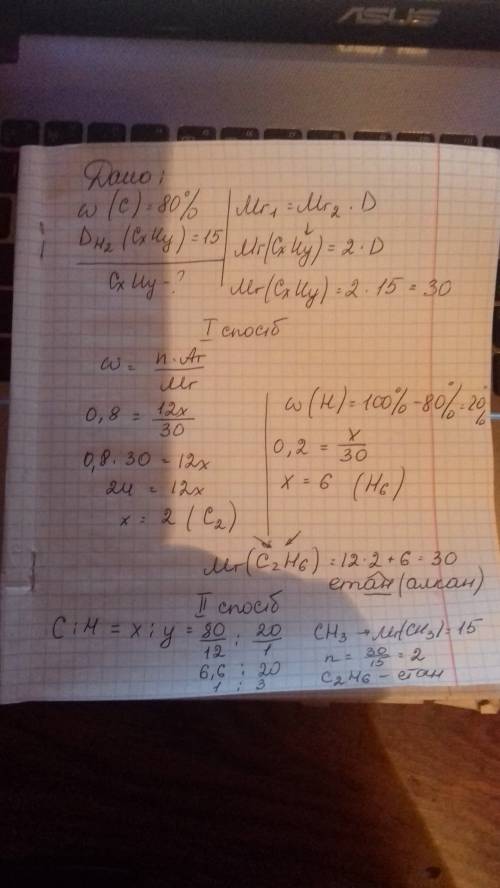 ASUS
Дано:
ω(C) = 80%
D H₂ (CxHy) = 15
CxHy - ?
Mr₁ = Mr₂ · D
Mr(CxHy) = 2 · D
Mr(CxHy) = 2 · 15 = 30
I спосіб
ω = n · Ar / Mr
0,8 = 12x / 30
0,8 · 30 = 12x
24 = 12x
x = 2 (C₂)
ω(H) = 100% - 80% = 20%
0,2 = x / 30
x = 6 (H₆)
Mr(C₂H₆) = 12 · 2 + 6 = 30
етан (алкан)
II спосіб
C : H = x : y = 80/12 : 20/1
6,6 : 20
1 : 3
CH₃ → Mr(CH₃) = 15
n = 30/15 = 2
C₂H₆ - етан